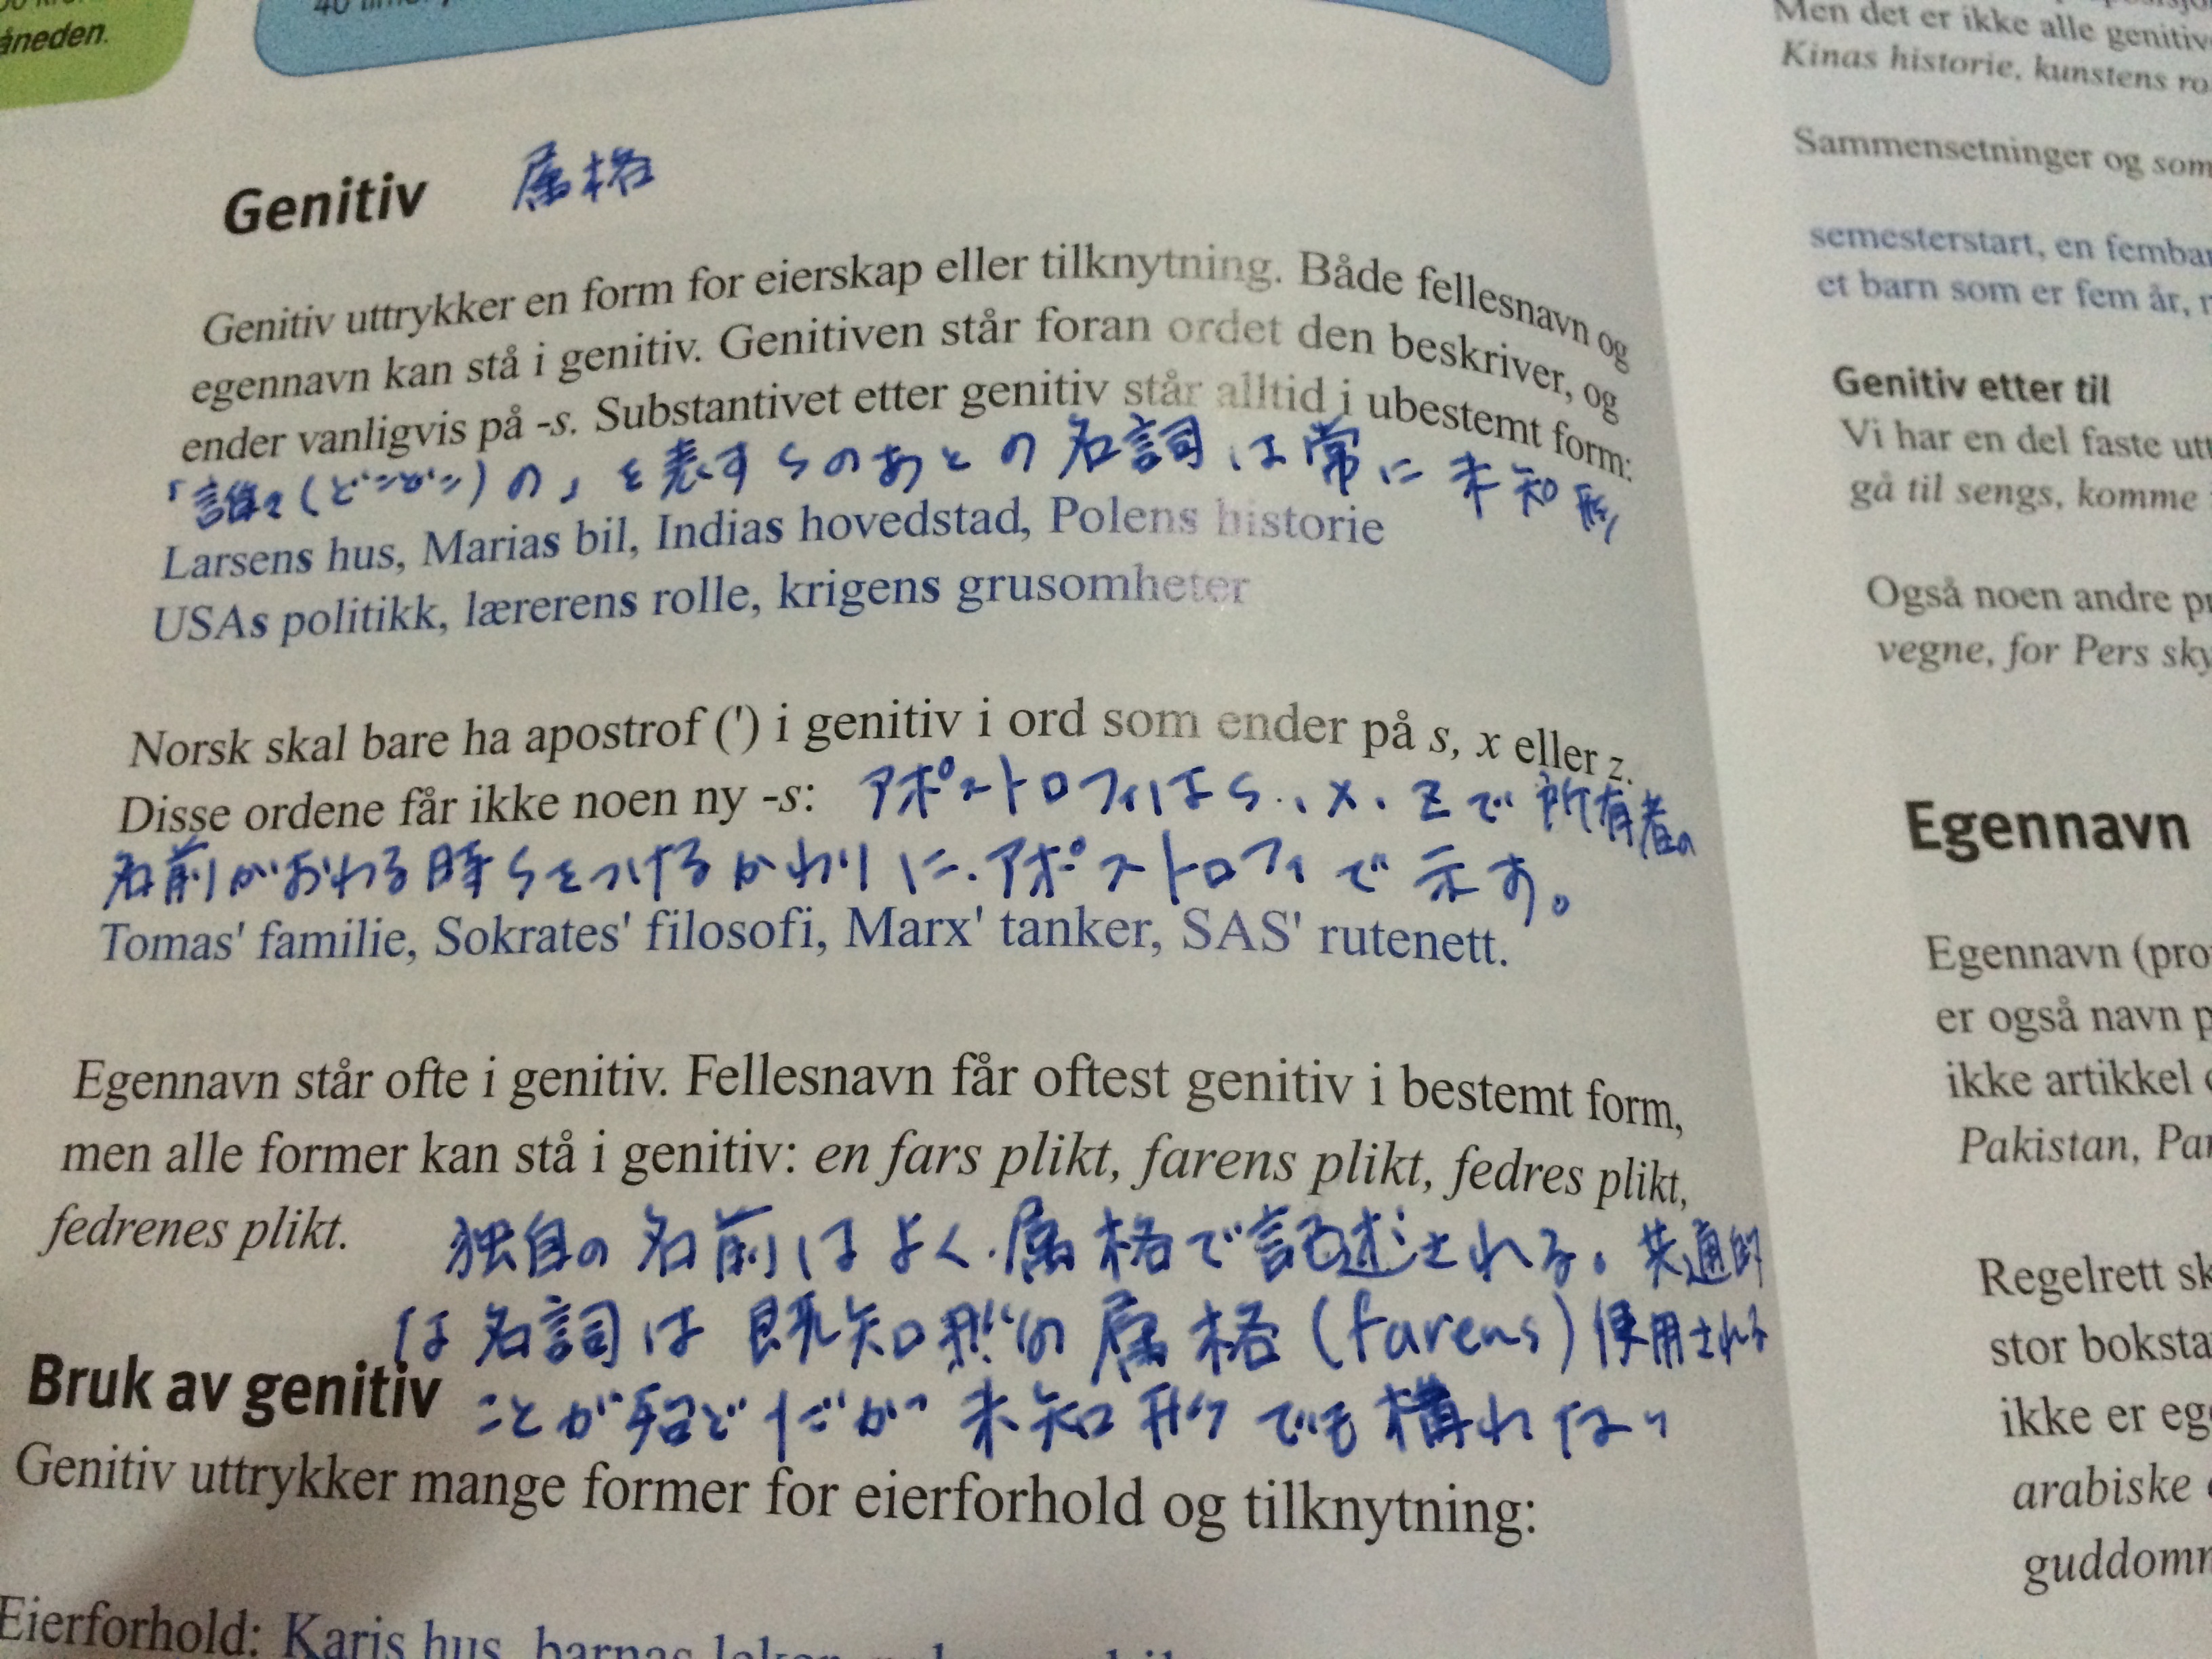 åneden.
Genitiv 属格
Genitiv uttrykker en form for eierskap eller tilknytning. Både fellesnavn og
egennavn kan stå i genitiv. Genitiven står foran ordet den beskriver, og
ender vanligvis på -s. Substantivet etter genitiv står alltid i ubestemt form:
「誰々(どこどこ)の」を表すsのあとの名詞は常に未知形
Larsens hus, Marias bil, Indias hovedstad, Polens historie
USAs politikk, lærerens rolle, krigens grusomheter
Norsk skal bare ha apostrof (') i genitiv i ord som ender på s, x eller z.
Disse ordene får ikke noen ny -s: アポストロフィはs、x、zで所有者の
名前がおわる時sをつけるかわりに、アポストロフィで示す。
Tomas' familie, Sokrates' filosofi, Marx' tanker, SAS' rutenett.
Egennavn står ofte i genitiv. Fellesnavn får oftest genitiv i bestemt form,
men alle former kan stå i genitiv: en fars plikt, farens plikt, fedres plikt,
fedrenes plikt. 独自の名前はよく、属格で記述される。共通的
な名詞は既知形の属格(farens)使用される
Bruk av genitiv ことが殆どだが 未知形でも構わない
Genitiv uttrykker mange former for eierforhold og tilknytning:
Eierforhold: Karis hus, barnas
Men det er ikke alle genitiv
Kinas historie, kunstens
Sammensetninger og som
semesterstart, en
et barn som er fem år,
Genitiv etter til
Vi har en del faste
gå til sengs, komme
Også noen andre
vegne, for Pers
Egennavn
Egennavn
er også navn
ikke artikkel
Pakistan,
Regelrett
stor
ikke er
arabiske